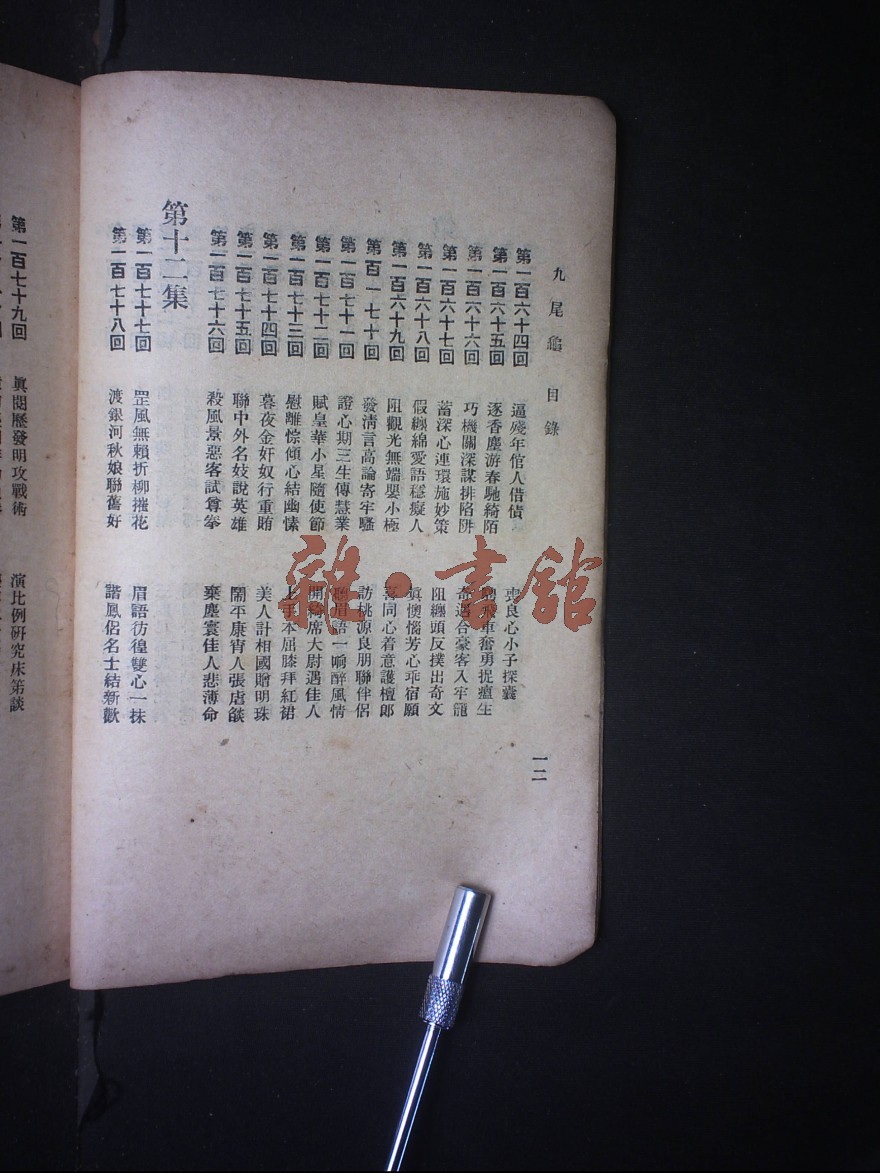 九尾龜 目錄
一二
第一百六十四回 逼殘年倌人借債 喪良心小子探囊
第一百六十五回 逐香塵游春馳綺陌 飛車奮勇捉瘟生
第一百六十六回 巧機關深謀排陷阱 奇遇合豪客入牢籠
第一百六十七回 蓄深心連環施妙策 阻纏頭反撲出奇文
第一百六十八回 假纏綿愛語穩癡人 眞懊惱芳心乖宿願
第一百六十九回 阻觀光無端嬰小極 喜同心着意護檀郎
第百一七十回 發清言高論寄牢騷 訪桃源良朋聯伴侶
第一百七十一回 證心期三生傳慧業 聽眉語一晌醉風情
第一百七十二回 賦皇華小星隨使節 開綺席大尉遇佳人
第一百七十三回 慰離悰傾心結幽愫 上手本屈膝拜紅裙
第一百七十四回 暮夜金奸奴行重賄 美人計相國贈明珠
第一百七十五回 聯中外名妓說英雄 鬧平康宵人張虐燄
第一百七十六回 殺風景惡客試尊拳 棄塵寰佳人悲薄命
第十二集
第一百七十七回 罡風無賴折柳摧花 眉語彷徨雙心一抹
第一百七十八回 渡銀河秋娘聯舊好 諧鳳侶名士結新歡
第一百七十九回 眞閱歷發明攻戰術 演比例硏究床笫談
雜·書館